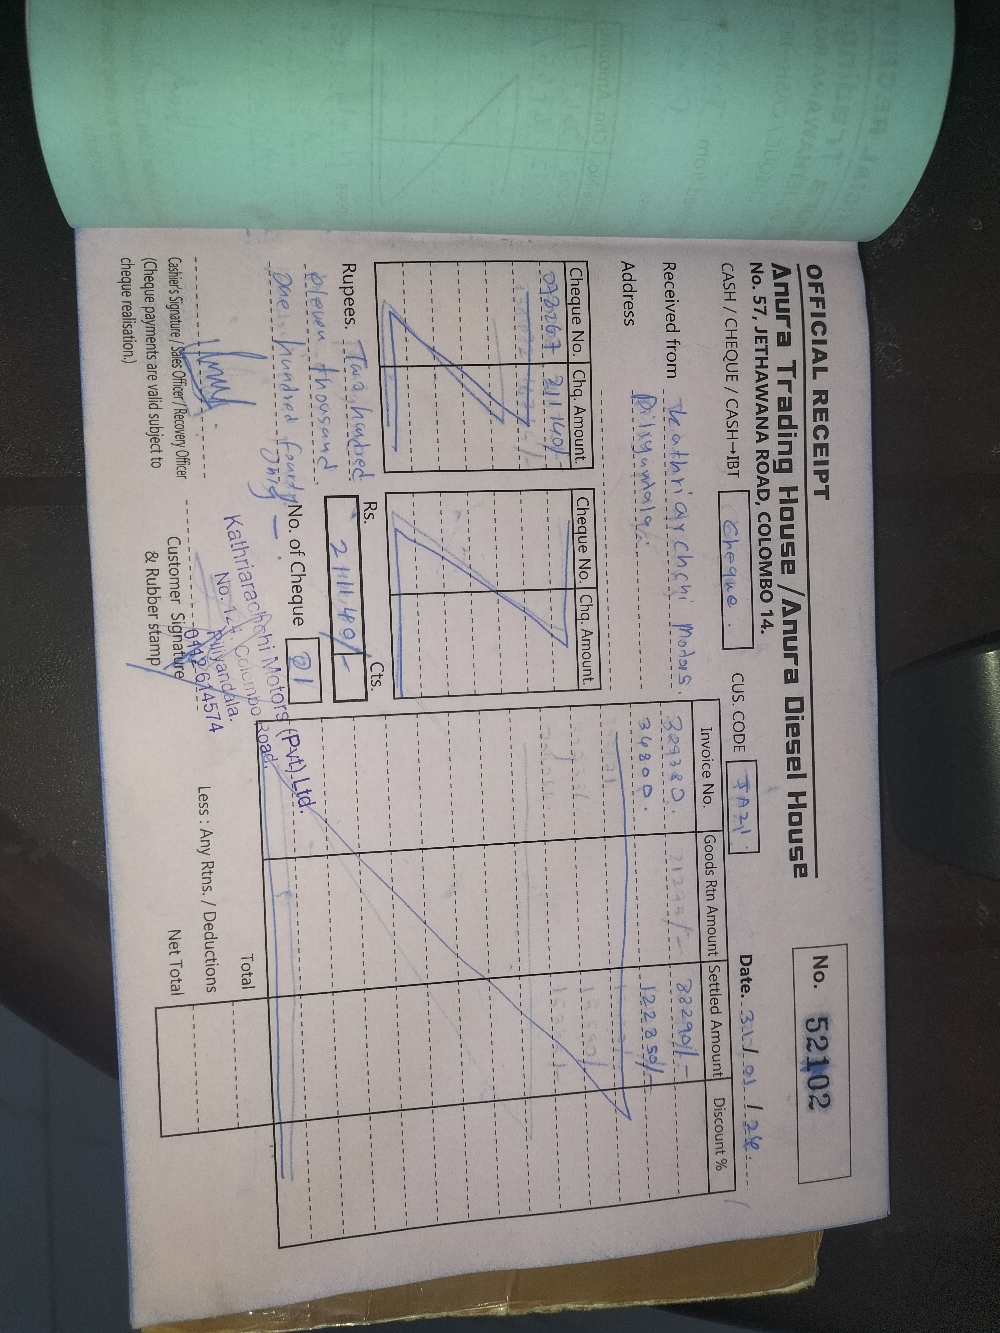 OFFICIAL RECEIPT
No. 52102
Anura Trading House / Anura Diesel House
No. 57, JETHAWANA ROAD, COLOMBO 14.
CASH / CHEQUE / CASH→IBT Cheque. CUS. CODE Date. 31/01/24
Received from Motors.
Address
Cheque No. Chq. Amount.
073267 211140/-
Cheque No. Chq. Amount.
Invoice No. Goods Rtn Amount Settled Amount Discount %
329380. 88290/-
34800. 122850/-
Rupees. Two hundred
eleven thousand
one hundred fourty
only —.
Rs. Cts.
211140/-
No. of Cheque 01
Kathriarachchi Motors (Pvt) Ltd.
No. 121, Colombo Road,
Piliyandala.
0112614574
Cashier's Signature / Sales Officer / Recovery Officer
(Cheque payments are valid subject to
cheque realisation.)
Customer Signature
& Rubber stamp
Total
Less : Any Rtns. / Deductions
Net Total